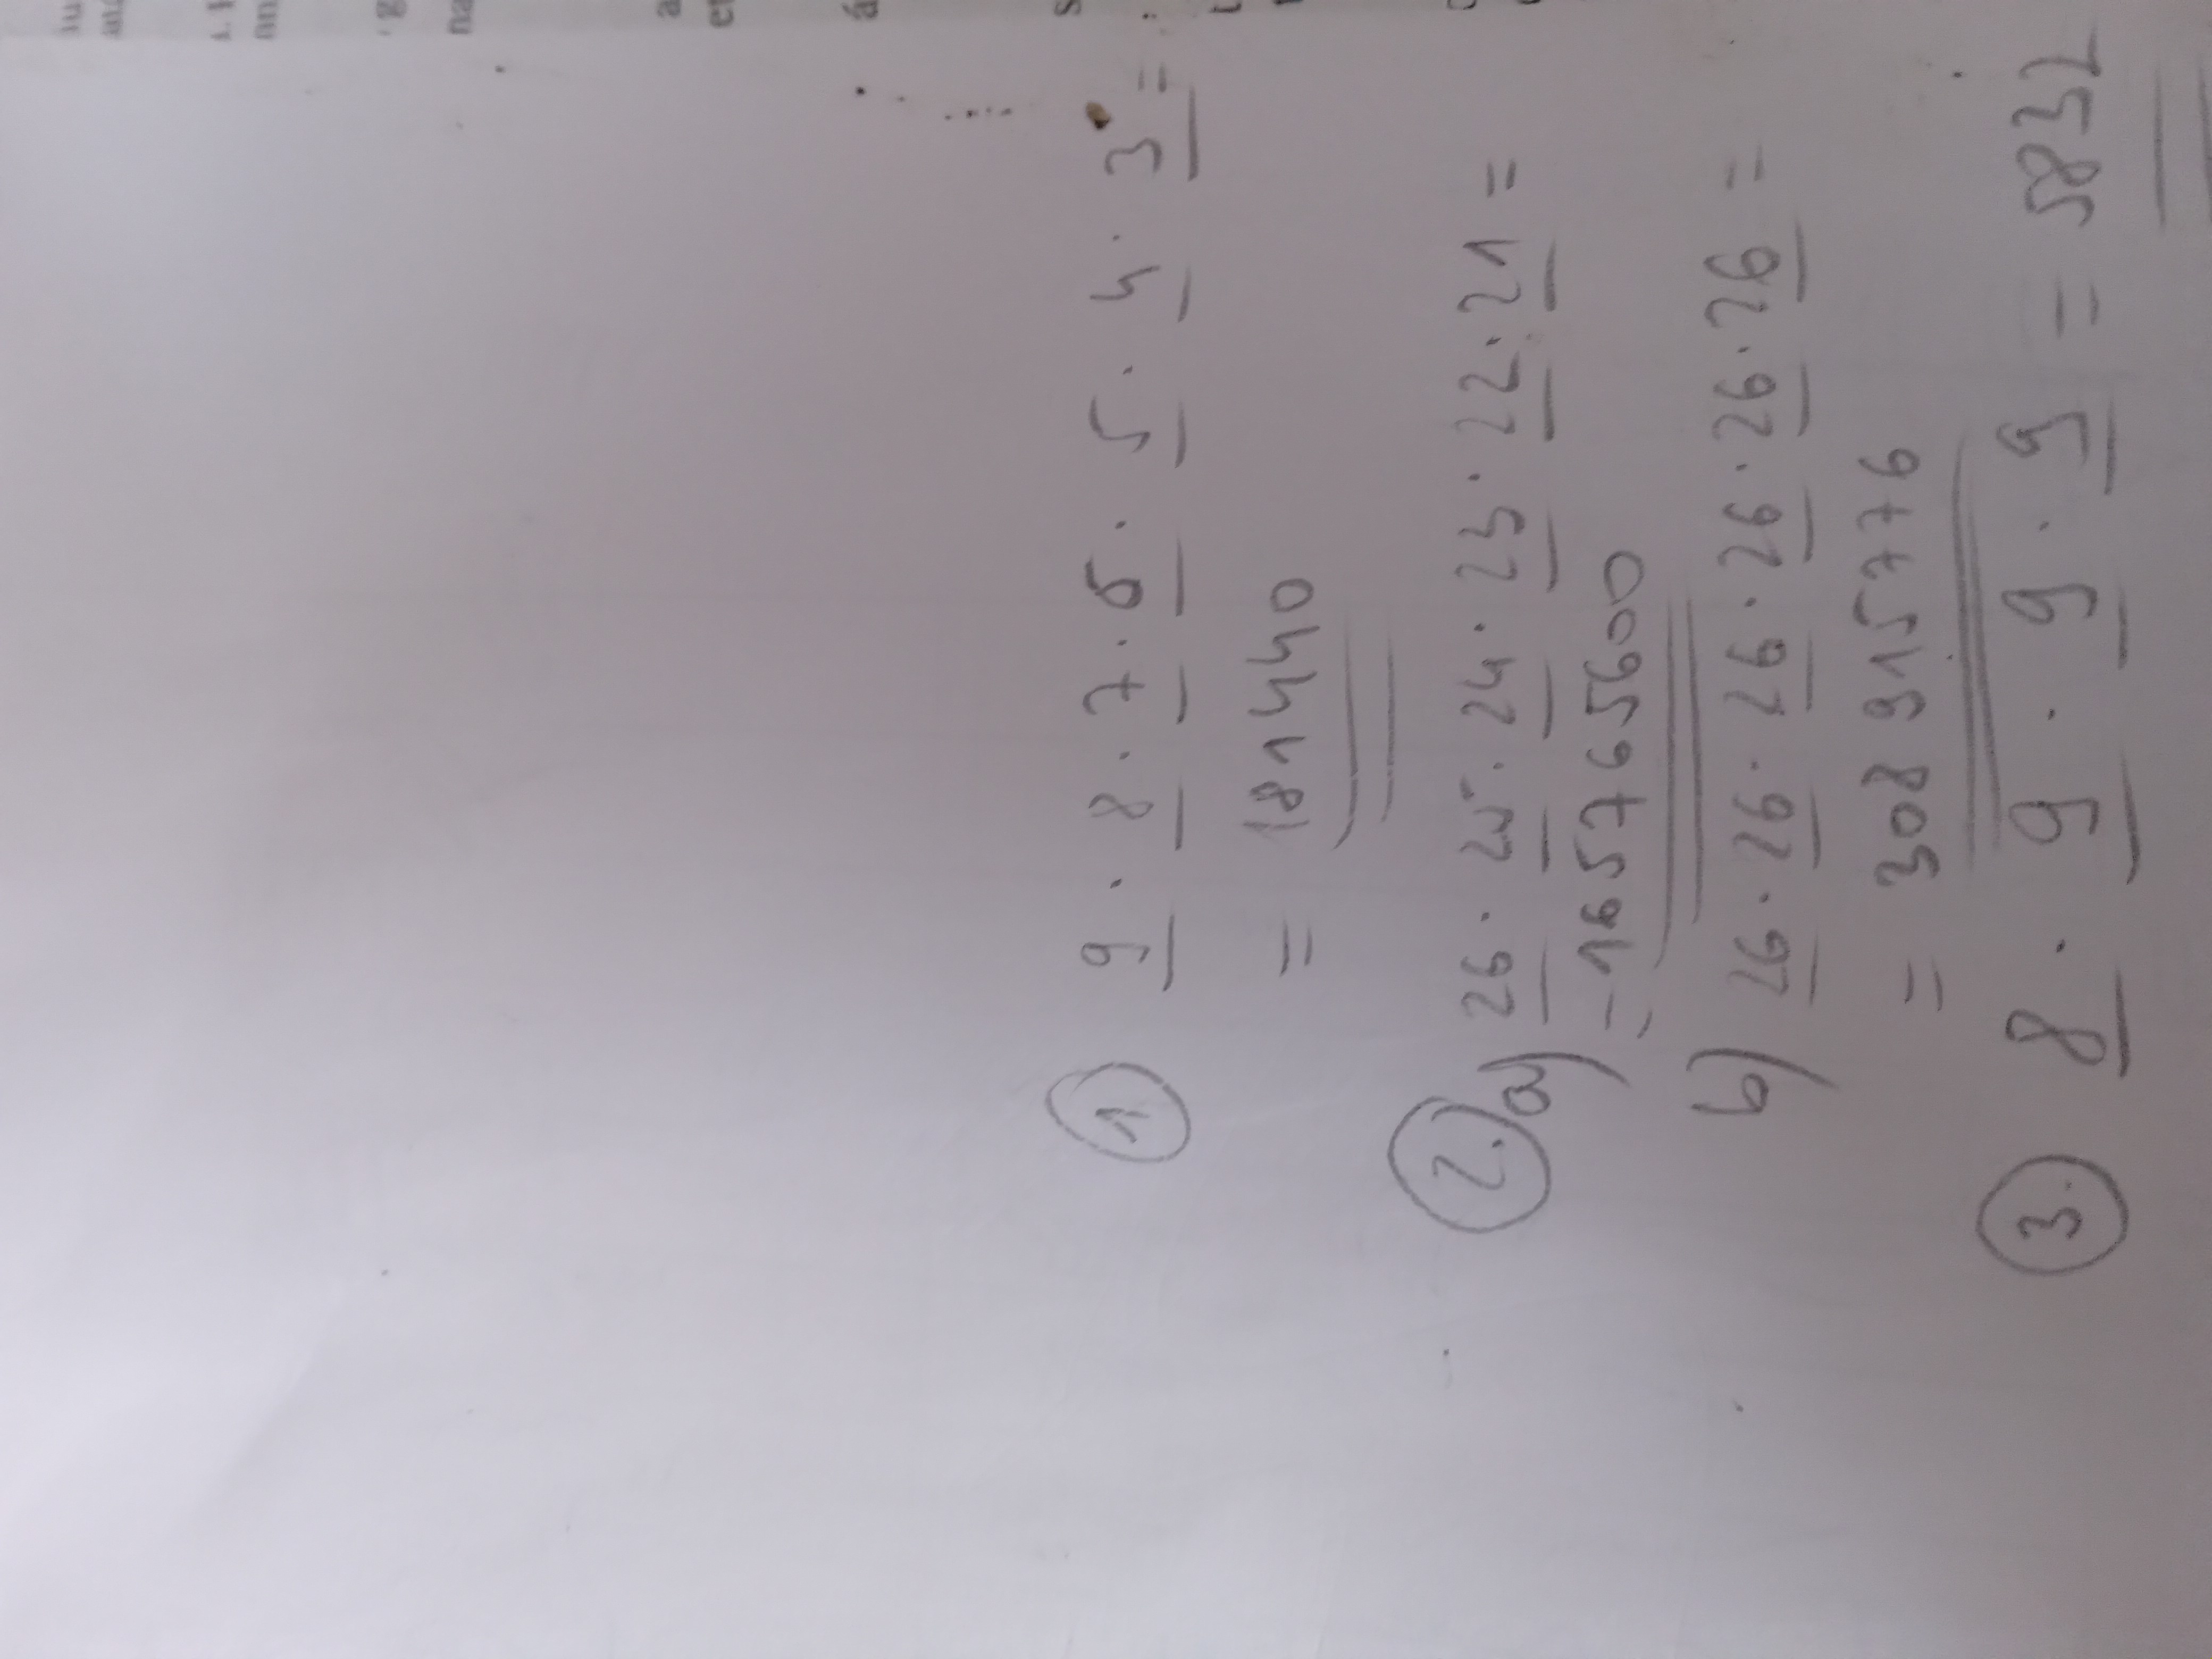 ① 9 . 8 . 7 . 6 . 5 . 4 . 3 =
= 181440
②. a) 26 . 25 . 24 . 23 . 22 . 21 =
= 165765600
b) 26 . 26 . 26 . 26 . 26 . 26 =
= 308 915776
③. 8 . 9 . 9 . 9 = 5832